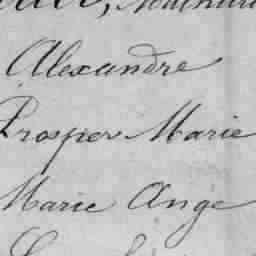 Alexandre
Prosper Marie
Marie Ange